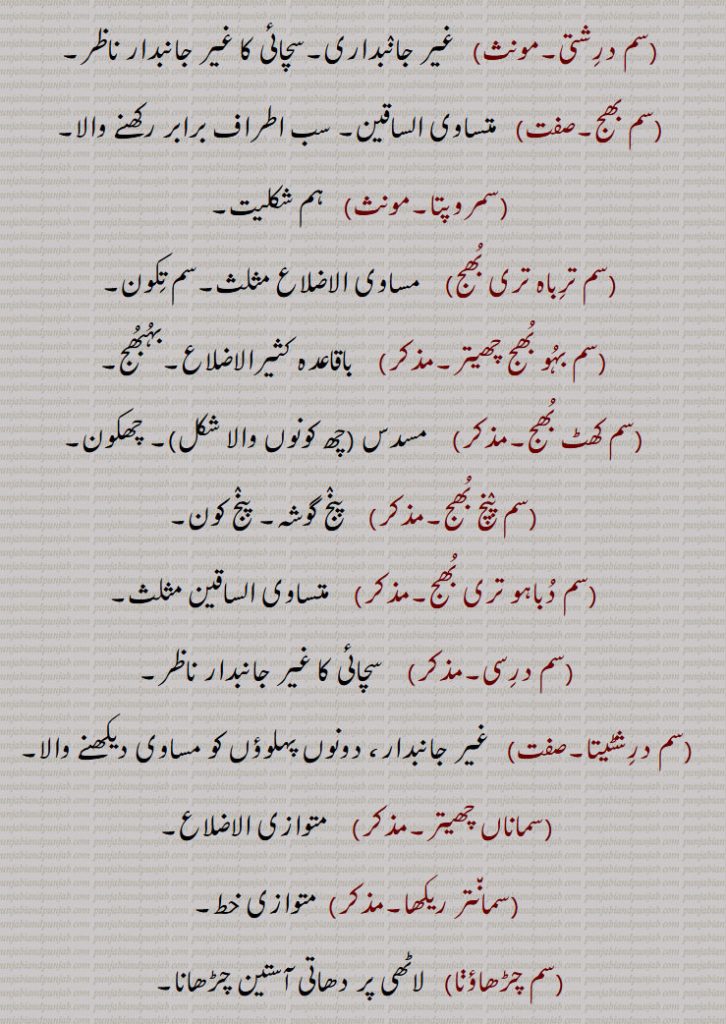 (سم درِشتی۔مونث) غیر جانٛبداری۔سچائی کا غیر جانبدار ناظر۔
(سم بھج۔صفت) متساوی الساقین۔ سب اطراف برابر رکھنے والا۔
(سمروپتا۔مونث) ہم شکلیت۔
(سم ترِباہ تری بُھج) مساوی الاضلاع مثلث۔سم تِکون۔
(سم بہُو بُھج چھیتر۔مذکر) باقاعدہ کثیرالاضلاع۔بہُبھُج۔
(سم کھٹ بُھج۔مذکر) مسدس (چھ کونوں والا شکل)۔ چھکون۔
(سم پنٛچ بُھج۔مذکر) پنٛج گوشہ۔ پنٛج کون۔
(سم دُباہو تری بُھج۔مذکر) متساوی الساقین مثلث۔
(سم درِسی۔مذکر) سچائی کا غیر جانبدار ناظر۔
(سم درِشٹیتا۔صفت) غیر جانبدار، دونوں پہلوؤں کو مساوی دیکھنے والا۔
(سماناں چھیتر۔مذکر) متوازی الاضلاع۔
(سمانّتر ریکھا۔مذکر) متوازی خط۔
(سم چڑھاؤݨا) لاٹھی پر دھاتی آستین چڑھانا۔